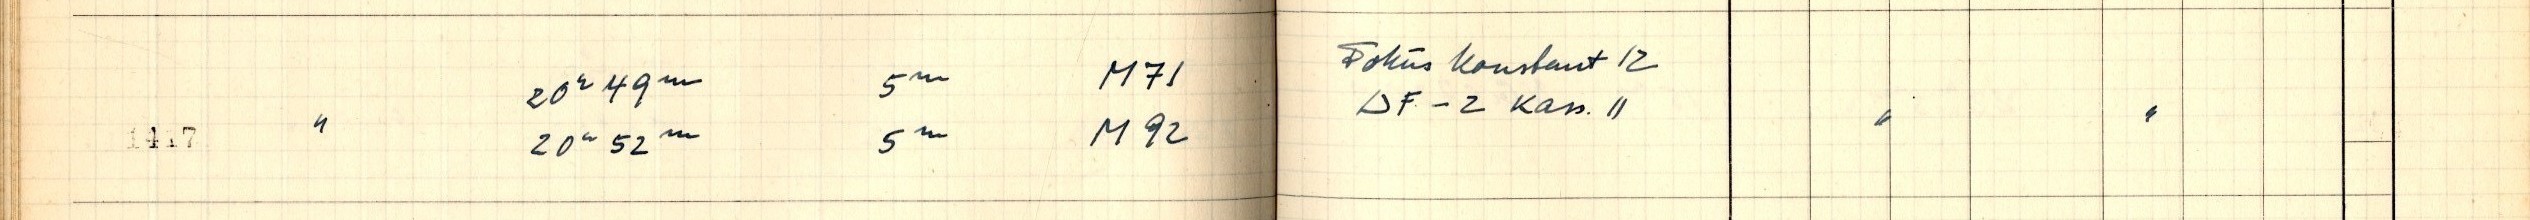 20h 49m 5m M 71 Fokus Konstant 12
1417 " 20h 52m 5m M 92 DF - 2 Kass. II " "